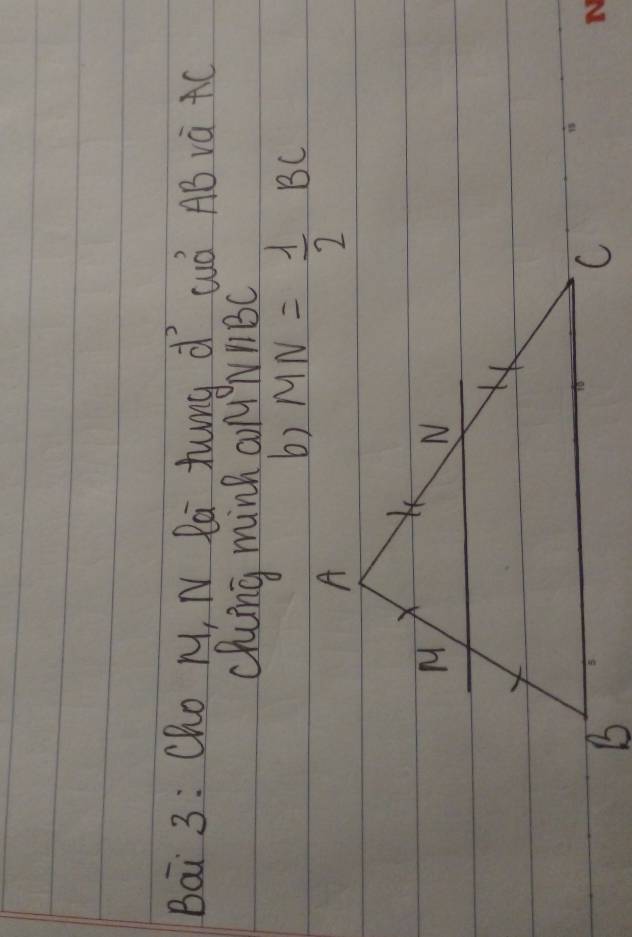 Bài 3: Cho M, N là trung đ' của AB và AC
chứng minh a, MN // BC
b) MN = 1/2 BC
A
M
N
B
C
5
10
15
N